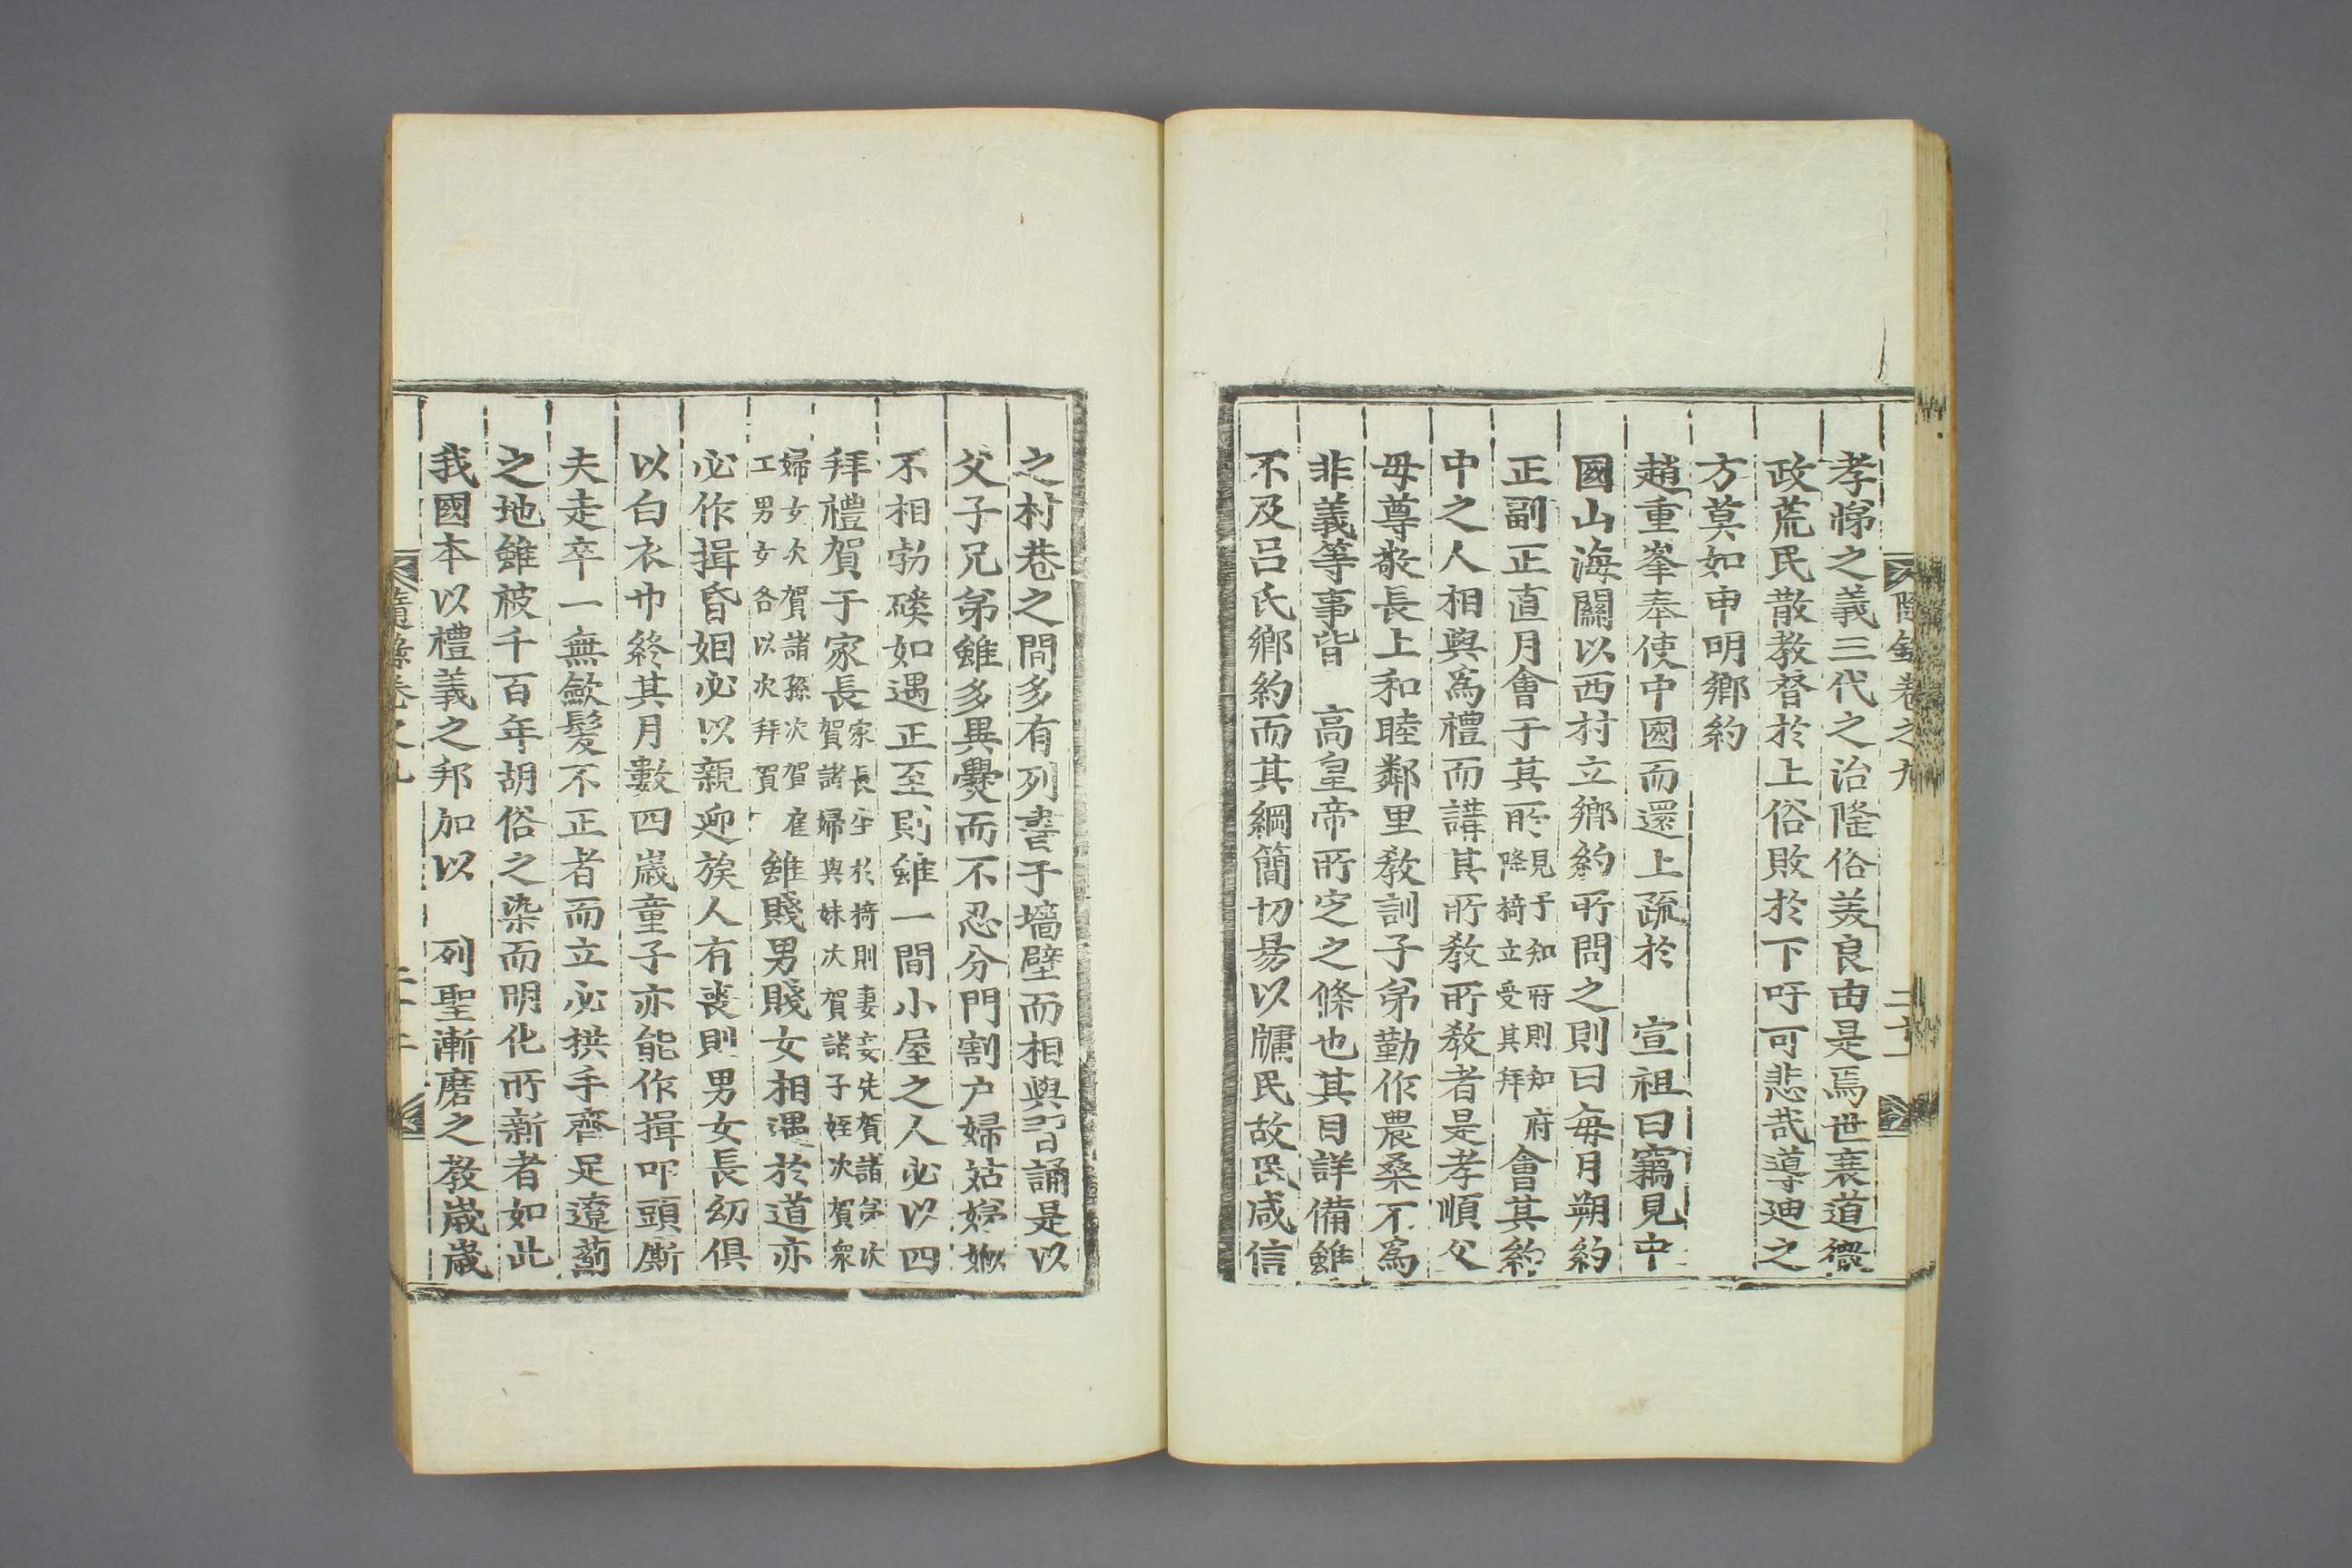 孝悌之義三代之治隆俗美良由是焉世衰道微
政荒民散教眢於上俗敗於下吁可悲哉導迪之
方莫如申明鄉約
趙重峯奉使中國而還上疏於　宣祖曰竊見中
國山海關以西村立鄉約所問之則曰每月朔約
正副正直月會于其所見于知府則知府降椅立受其拜會其約
中之人相與爲禮而講其所教所教者是孝順父
母尊敬長上和睦鄰里教訓子弟勤作農桑不爲
非義等事皆　高皇帝所定之條也其目詳備雖
不及呂氏鄉約而其綱簡切易以牖民故民咸信
之村巷之間多有列書于墻壁而相與習誦是以
父子兄弟雖多異爨而不忍分門割户婦姑娣姒
不相勃磎如遇正至則雖一間小屋之人必以四
拜禮賀于家長家長坐於椅則妻妾先賀諸弟次賀諸婦與妹次賀諸子姪次賀衆
婦女次賀諸孫次賀雇工男女各以次拜賀雖賤男賤女相遇於道亦
必作揖昏姻必以親迎族人有喪則男女長幼俱
以白衣巾終其月數四歲童子亦能作揖叩頭厮
夫走卒一無歛髮不正者而立必拱手齊足遼薊
之地雖被千百年胡俗之染而明化所新者如此
我國本以禮義之邦加以　列聖漸磨之教歲歲
隨錄卷之九